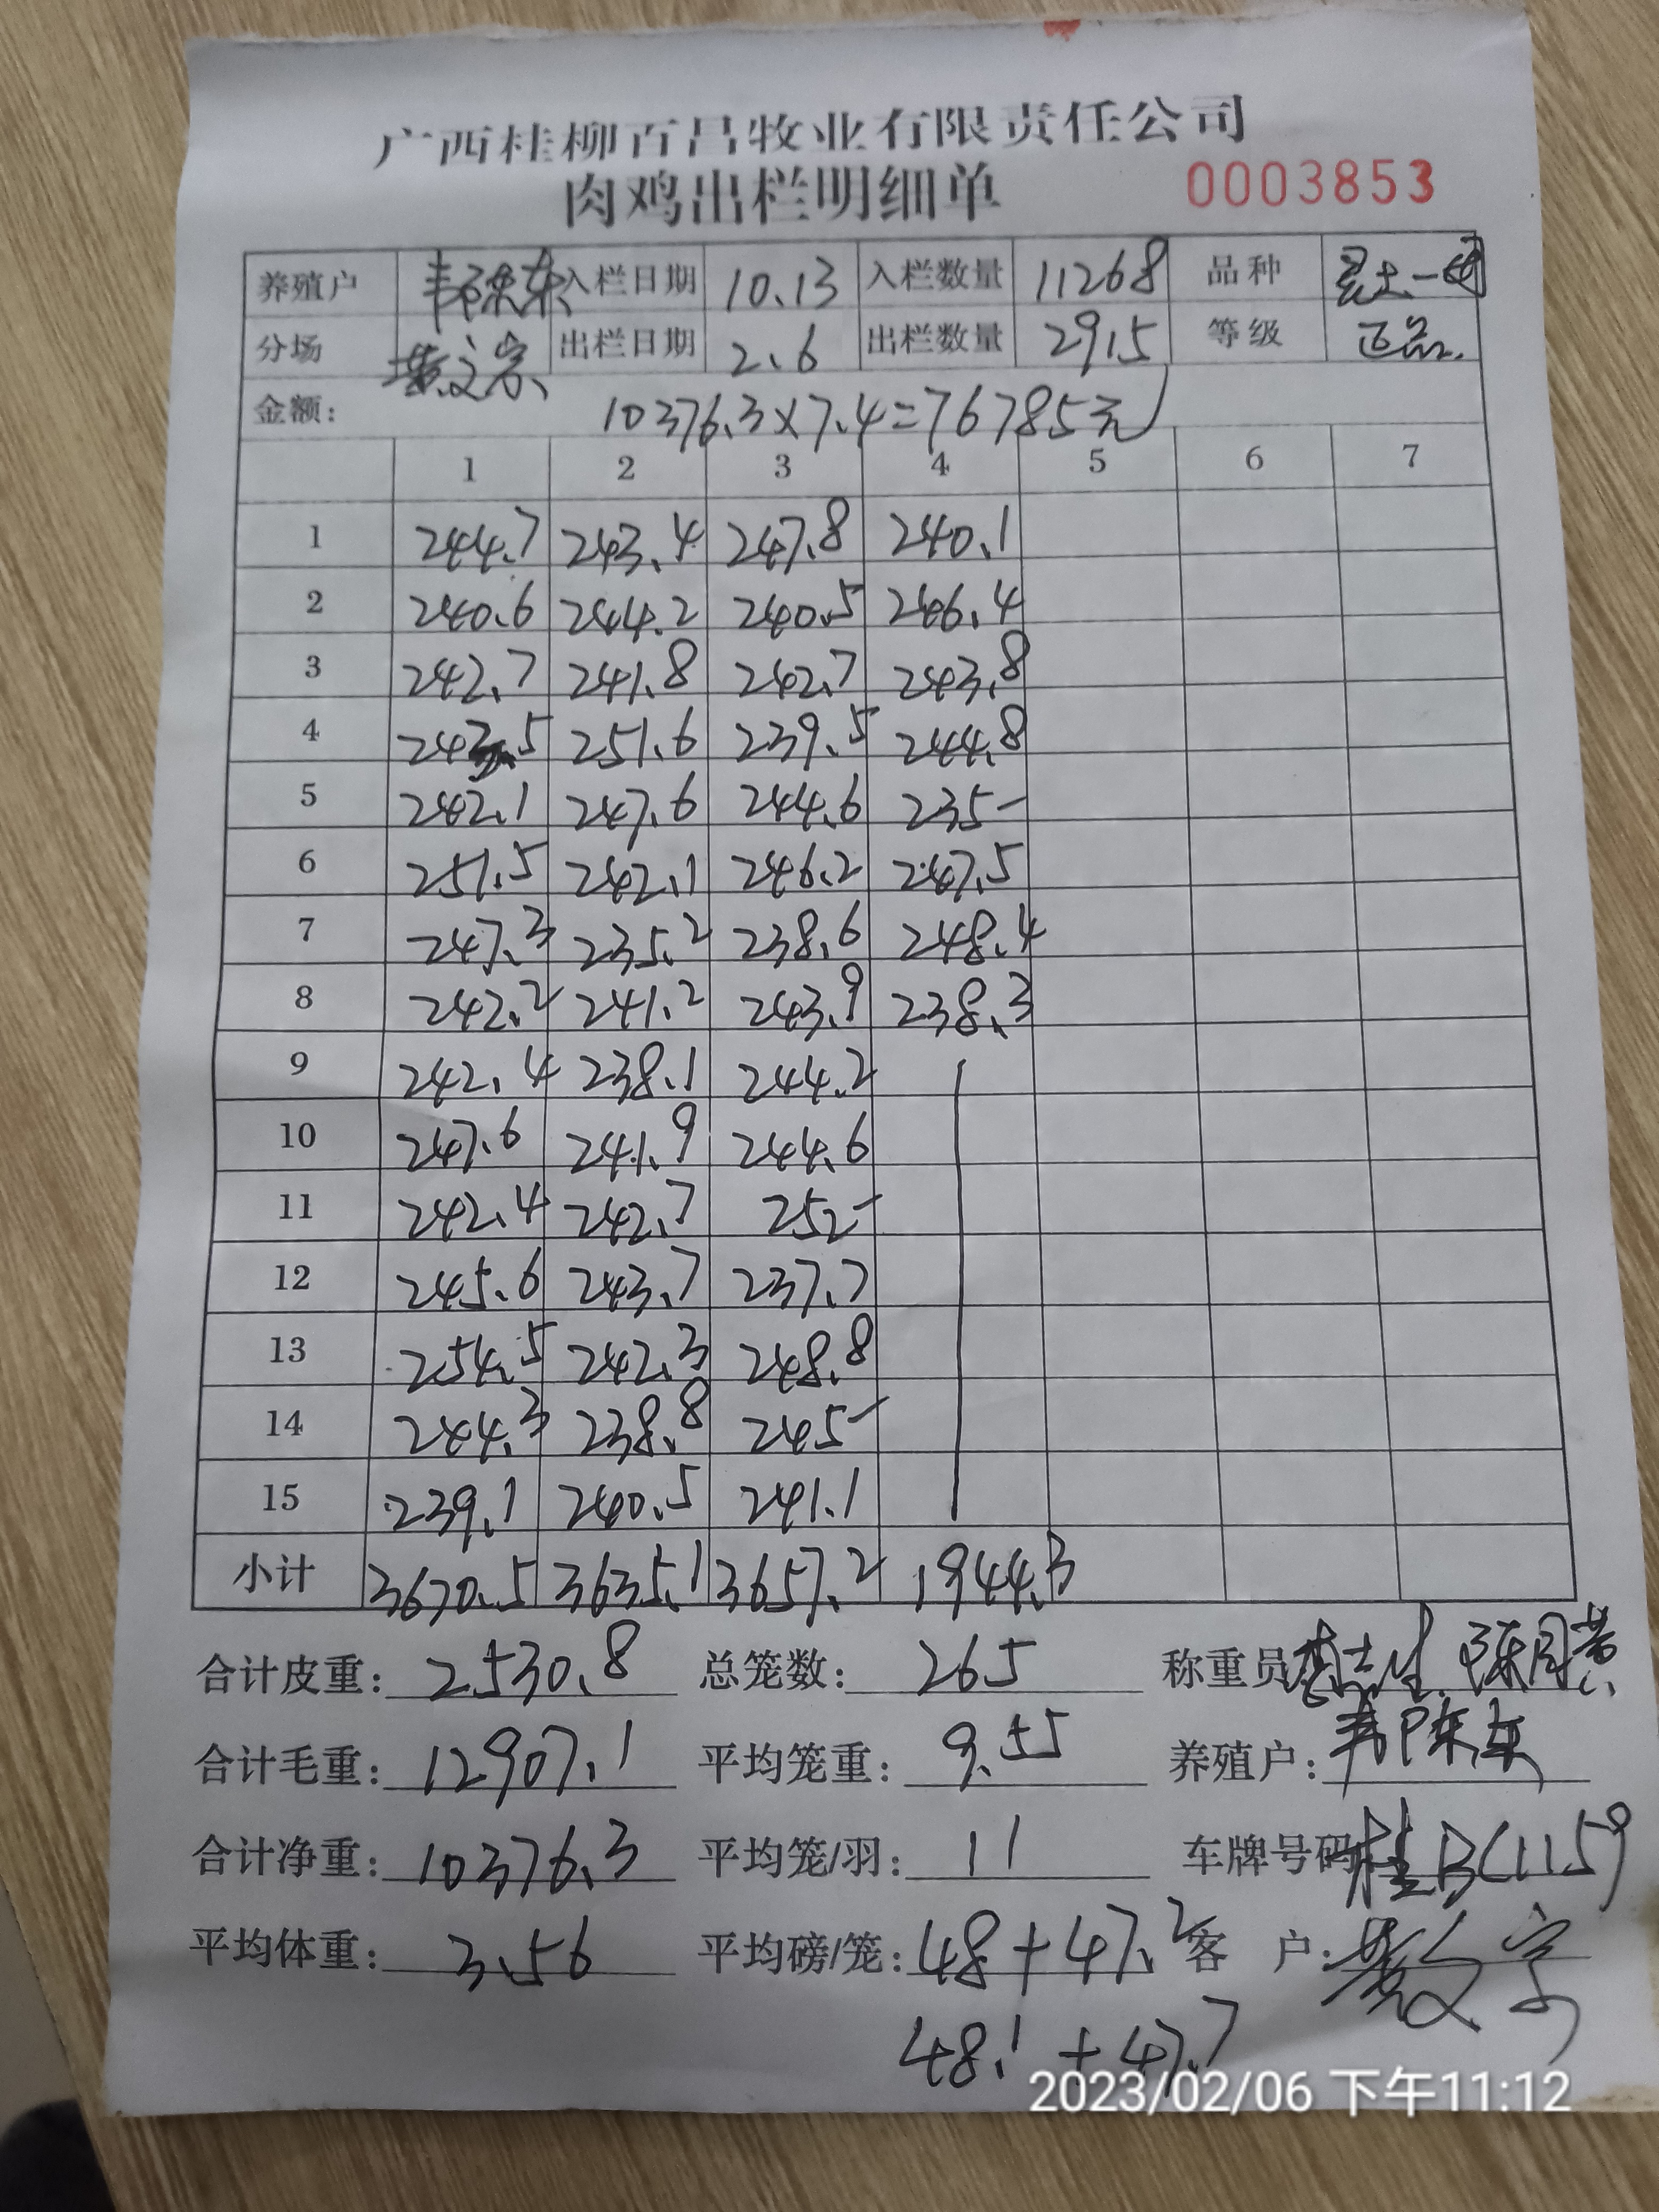 广西桂柳百昌牧业有限责任公司
肉鸡出栏明细单 0003853
养殖户 入栏日期 10.13 入栏数量 11268 品种
分场 黄文宗 出栏日期 2.6 出栏数量 2915 等级 正品.
金额: 10376.3×7.4=76785元
1 2 3 4 5 6 7
1 244.7 243.4 247.8 240.1
2 240.6 244.2 240.5 246.4
3 242.7 241.8 242.7 243.8
4 243.5 251.6 239.5 244.8
5 242.1 247.6 244.6 235-
6 251.5 242.1 246.2 247.5
7 247.3 235.2 238.6 248.4
8 242.2 241.2 243.9 238.3
9 242.4 238.1 244.2
10 247.6 241.9 244.6
11 242.4 242.7 252-
12 245.6 243.7 237.7
13 254.5 242.3 248.8
14 244.3 238.8 245-
15 239.1 240.5 241.1
小计 3670.5 3635.1 3657.2 1944.3
合计皮重: 2530.8 总笼数: 265 称重员
合计毛重: 12907.1 平均笼重: 9.55 养殖户:
合计净重: 10376.3 平均笼/羽: 11 车牌号码 桂BC1159
平均体重: 3.56 平均磅/笼: 48+47.2 客 户:
48.1+47.7
2023/02/06 下午11:12